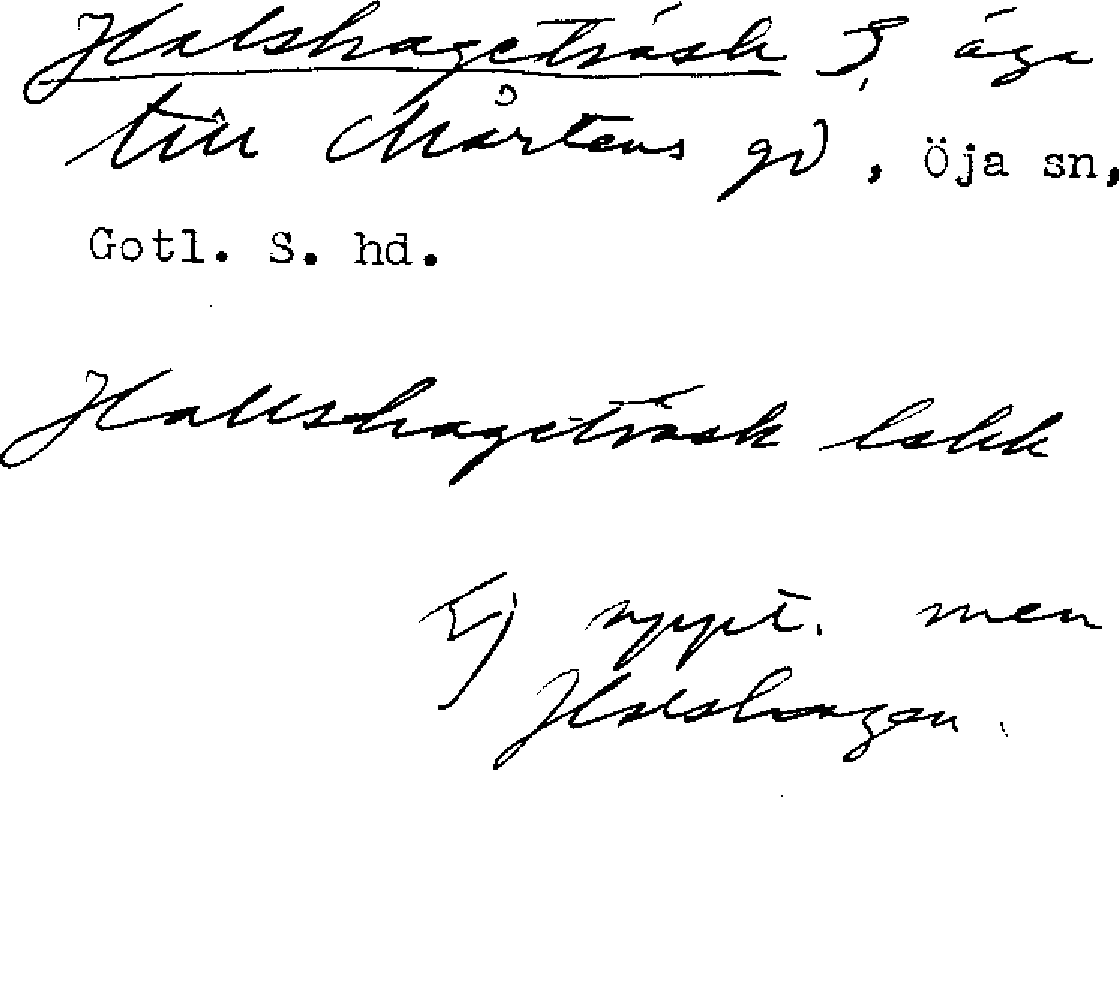 Halshageträsk 3, äga
till Mårtens gd, Öja sn,
Gotl. S. hd.
Hallshageträsk lskk
Ej uppt. men
Halshagen.